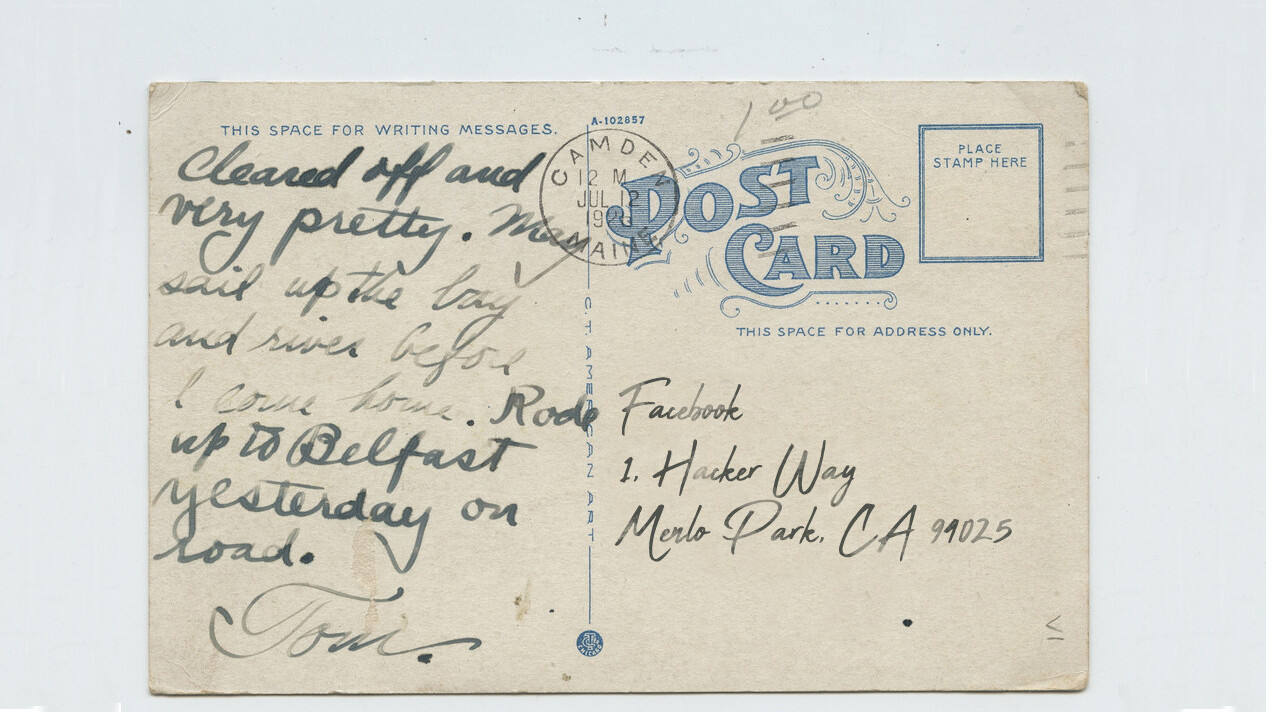 THIS SPACE FOR WRITING MESSAGES.
Cleared off and
very pretty. May
sail up the bay
and river before
I come home. Rode
up to Belfast
yesterday on
road.
Tom.
A-102857
CAMDEN
12 M
JUL 12
MAINE
1 00
POST
CARD
PLACE
STAMP HERE
THIS SPACE FOR ADDRESS ONLY.
C.T. AMERICAN ART
Facebook
1, Hacker Way
Menlo Park, CA 94025